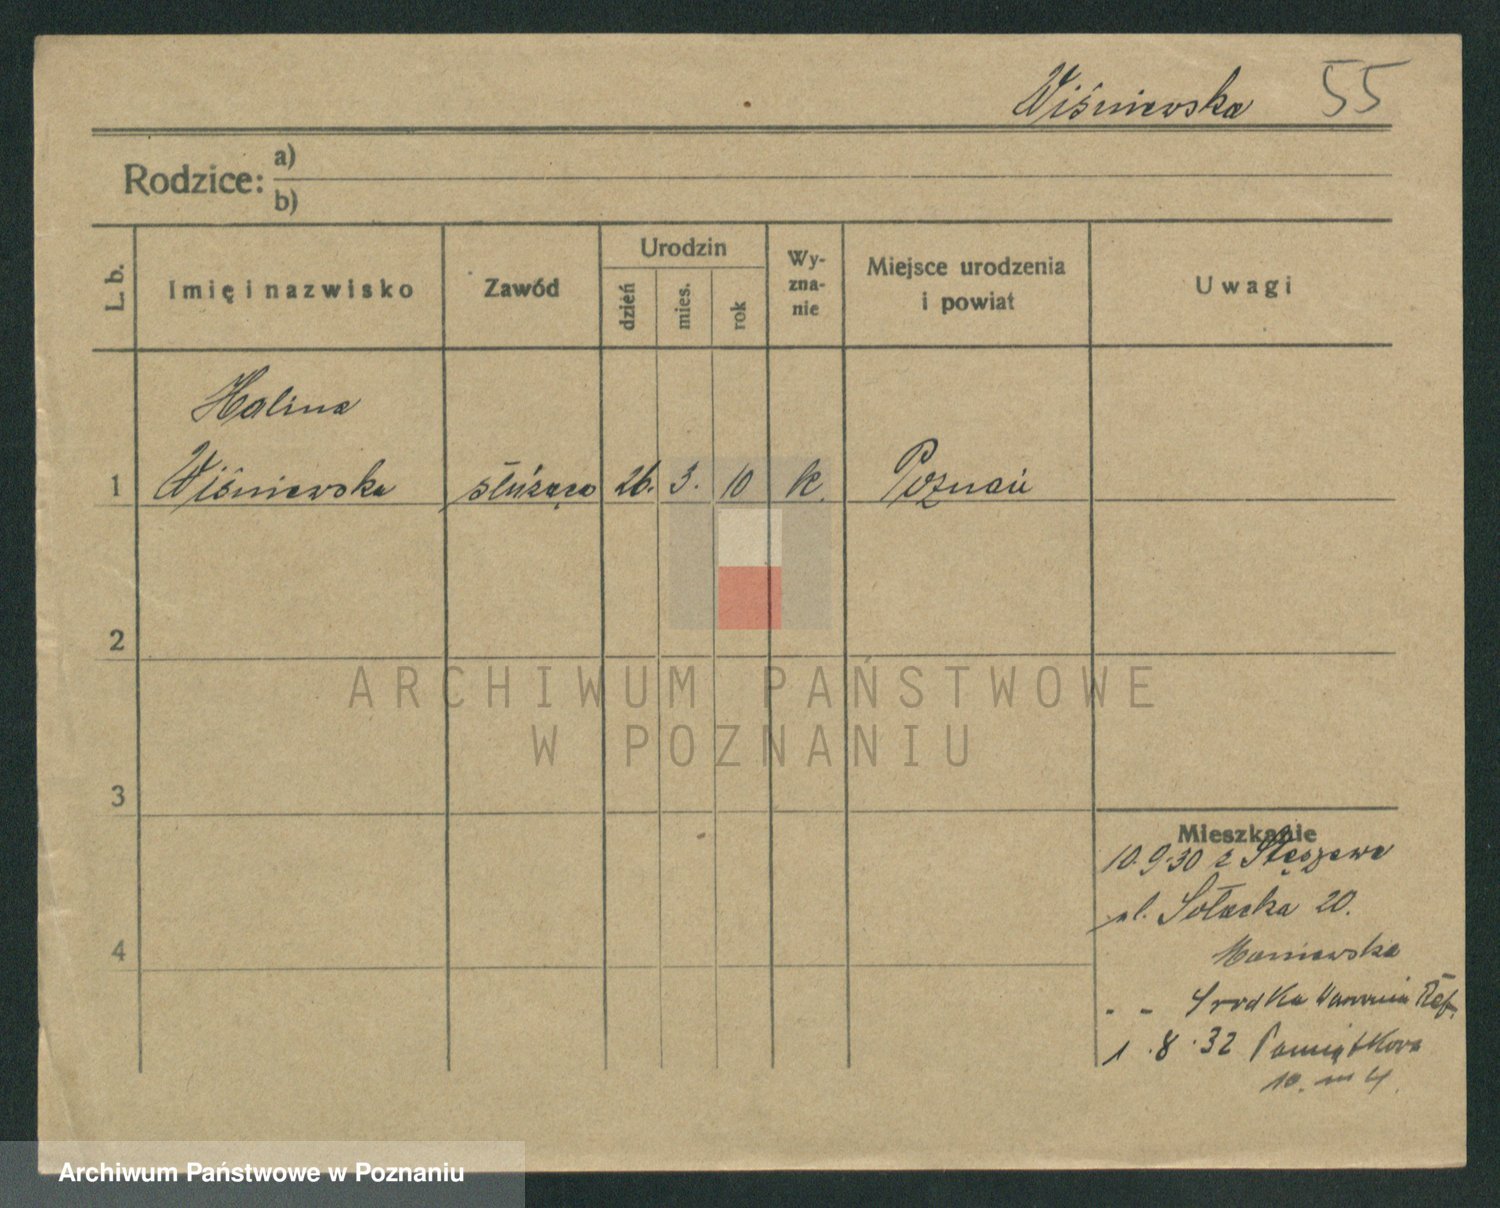 Wiśniewska 55
Rodzice: a)
b)
L. b.
Imię i nazwisko
Zawód
Urodzin
dzień
mies.
rok
Wy-
zna-
nie
Miejsce urodzenia
i powiat
Uwagi
Halina
1 Wiśniewska służąca 26. 3. 10 k. Poznań
2
3
4
Mieszkanie
10.9.30 z Stęszewa
ul. Sołacka 20.
Maniewska
- - Srodka
1.8.32 Pamiątkowa
10. m 4.
ARCHIWUM PAŃSTWOWE
W POZNANIU
Archiwum Państwowe w Poznaniu